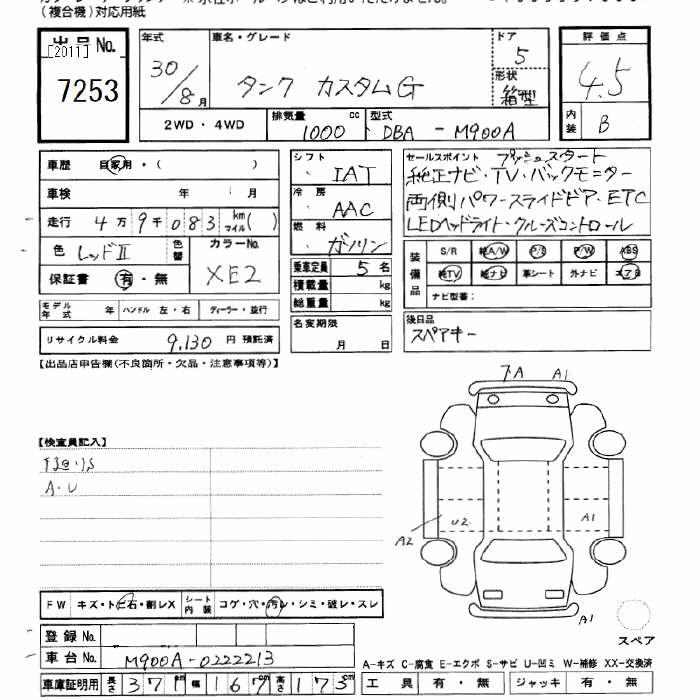 (複合機)対応用紙
出品 No.
[2011]
7253
年式
車名・グレード
ドア
5
30/8月
タンク カスタムG
形状
箱型
2WD・4WD
排気量
1000 cc
型式
DBA - M900A
評価点
4.5
内装
B
車歴
自家用・( )
車検
年 月
走行
4万9千083 km マイル( )
色
レッドII
色替
カラーNo.
XE2
保証書
有・無
モデル年式
年
ハンドル 左・右
ディーラー・並行
リサイクル料金
9,130 円 預託済
シフト
IAT
冷房
AAC
燃料
ガソリン
乗車定員
5 名
積載量
kg
総重量
kg
名変期限
月 日
セールスポイント
プッシュスタート
純正ナビ・TV・バックモニター
両側パワースライドドア・ETC
LEDヘッドライト・クルーズコントロール
装備品
S/R
純A/W
P/S
P/W
ABS
純TV
純ナビ
革シート
外ナビ
エアB
ナビ型番:
後日品
スペアキー
【出品店申告欄(不良箇所・欠品・注意事項等)】
【検査員記入】
A・U
FW
キズ・トビ石・割レX
シート内装
コゲ・穴・汚レ・シミ・破レ・スレ
登録 No.
車台 No.
M900A-0222213
車庫証明用
長さ
371
幅
167
高さ
173 cm
A1
A2
U2
A1
A1
スペア
A-キズ C-腐食 E-エクボ S-サビ U-凹ミ W-補修 XX-交換済
工具
有・無
ジャッキ
有・無